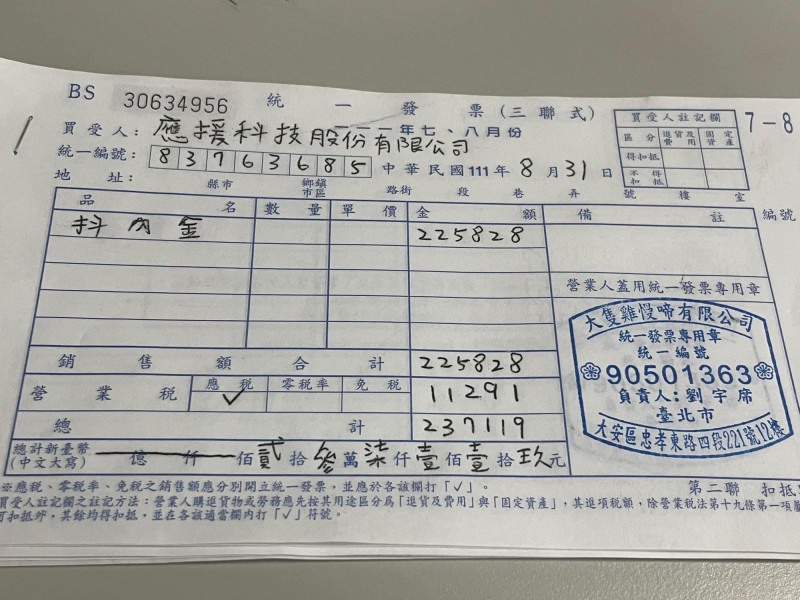 BS 30634956 統一發票(三聯式)
一一一年七、八月份
7-8
買受人: 應援科技股份有限公司
統一編號: 83763685 中華民國111年8月31日
地址: 縣市 鄉鎮市區 路街 段 巷 弄 號 樓 室
買受人註記欄
區分 進貨及費用 固定資產
得扣抵
不得扣抵
品名 數量 單價 金額 備註 編號
抖內金 225828
營業人蓋用統一發票專用章
銷售額合計 225828
營業稅 應稅 零稅率 免稅 11291
✓
總計 237119
總計新臺幣(中文大寫) 億 仟 佰貳拾參萬柒仟壹佰壹拾玖元
大隻雞慢啼有限公司
統一發票專用章
統一編號
90501363
負責人:劉宇席
臺北市
大安區忠孝東路四段221號12樓
※應稅、零稅率、免稅之銷售額應分別開立統一發票,並應於各該欄打「✓」。
第二聯 扣抵
買受人註記欄之註記方法:營業人購進貨物或勞務應先按其用途區分為「進貨及費用」與「固定資產」,其進項稅額,除營業稅法第十九條第一項
可扣抵外,其餘均得扣抵,並在各該適當欄內打「✓」符號。